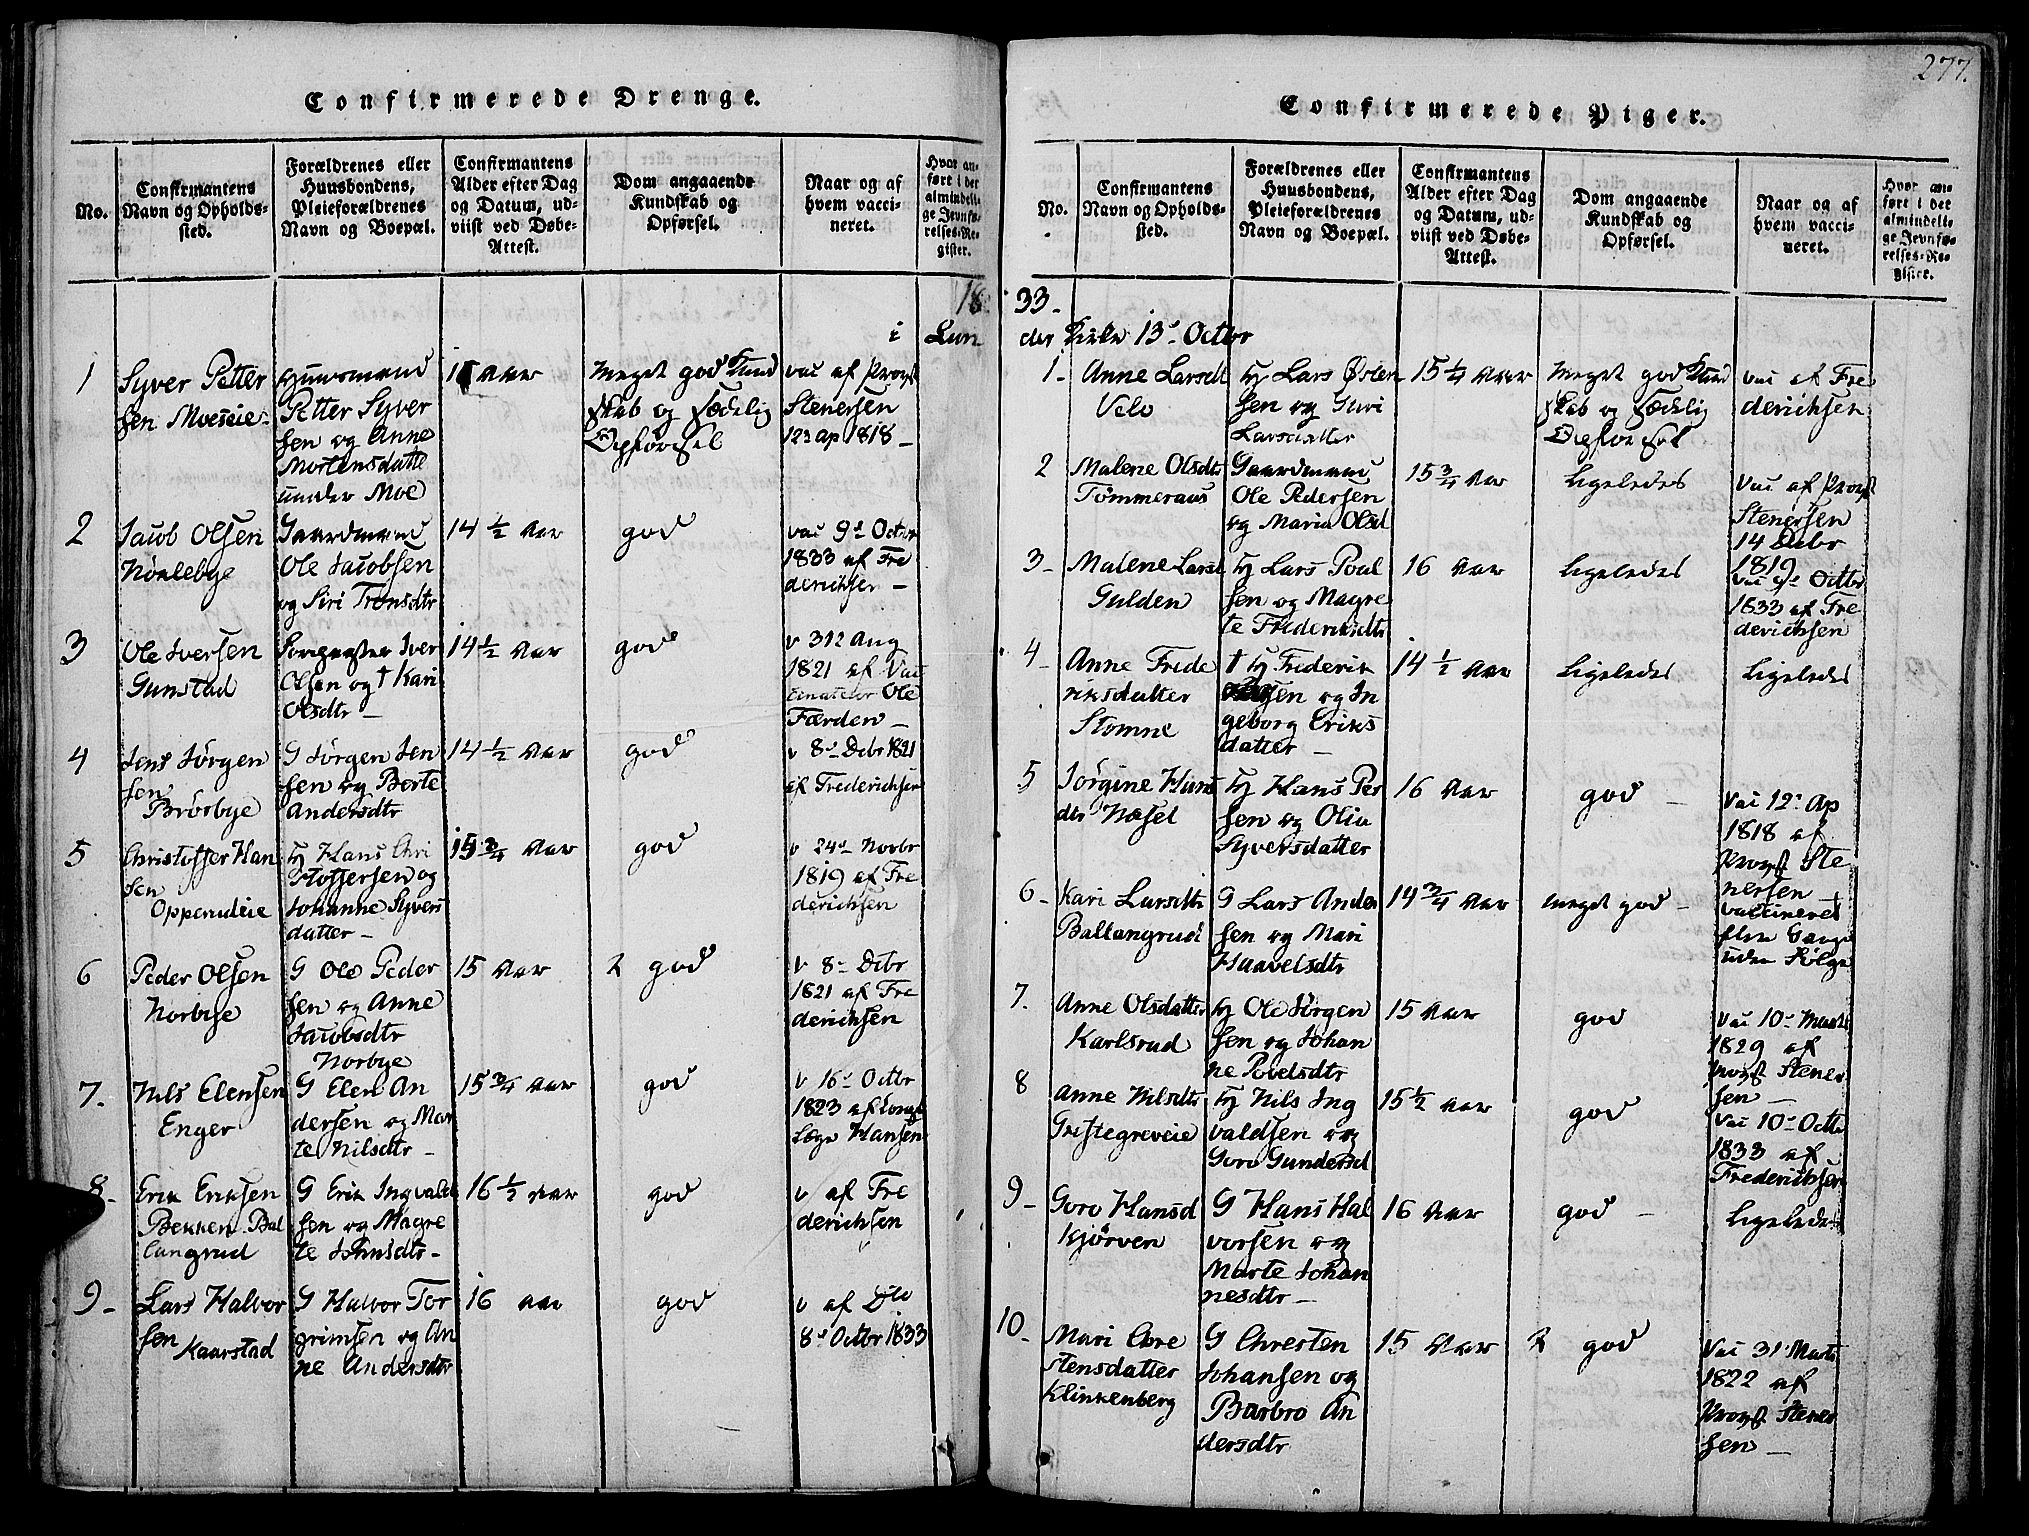 Confirmerede Drenge.
No.
Confirmantens
Navn og Opholds-
sted.
Forældrenes eller
Huusbondens,
Pleieforældrenes
Navn og Boepæl.
Confirmantens
Alder efter Dag
og Datum, ud-
viist ved Døbe-
Attest.
Dom angaaende
Kundskab og
Opførsel.
Naar og af
hvem vacci-
neret.
Hvor an-
ført i det
almindeli-
ge Jevnfø-
relses-Re-
gister.
18
i Lun
1
Syver Petter
sen Moeseie
Huusmand
Petter Syver
sen og Anne
Mortensdatte
under Moe
Aar
Meget god Kund
skab og sædelig
Opførsel
vac af Provst
Stenersen
12 ap 1818
2
Jacob Olsen
Noklebye
Gaardmand
Ole Jacobsen
og Siri Tronsdtr
14 1/2 Aar
god
vac 9de Octbr
1833 af Fre
derichsen
3
Ole Iversen
Gunstad
Iver
Olsen og † Kari
Olsdtr
14 1/2 Aar
god
v 312 Aug
1821 af Vac
Ole
Færden
4
Jens Jörgen
sen
Brörbye
G Jörgen Jen
sen og Berte
Andersdtr
14 1/2 Aar
god
v 8de Debr 1821
af Frederichsen
5
Christoffer Han
sen
Oppeneie
H Hans Chri
stoffersen og
Johanne Syvers
datter
15 3/4 Aar
god
v 24de Novbr
1819 af Fre
derichsen
6
Peder Olsen
Norbye
G Ole Peder
sen og Anne
Jacobsdtr
Norbye
15 Aar
god
v 8de Debr
1821 af Fre
derichsen
7.
Nils Elensen
Enger
G Elen An
dersen og Mar
te Nilsdtr
15 3/4 Aar
god
v 16de Octbr
1823 af
Hansen
8
Erik Eriksen
Bekken Bal
langrud
G Erik Ingvald
sen og Magre
te Johnsdtr
16 1/2 Aar
god
v af Fre
derichsen
9
Lars Halvor
sen Kaarstad
G Halvor Tor
grimsen og An
ne Andersdtr
16 aar
god
v af Dto
8de Octbr 1833
277.
Confirmerede Piger.
No.
Confirmantens
Navn og Opholds-
sted.
Forældrenes eller
Huusbondens,
Pleieforældrenes
Navn og Boepæl.
Confirmantens
Alder efter Dag
og Datum, ud-
viist ved Døbe-
Attest.
Dom angaaende
Kundskab og
Opførsel.
Naar og af
hvem vacci-
neret.
Hvor an-
ført i det
almindeli-
ge Jevnfø-
relses-Re-
gister.
33
der Kirke 13de Octbr
1
Anne Larsdt
Velo
H Lars Østen
sen og Guri
Larsdatter
15 1/4 Aar
Meget god Kund
skab og sædelig
Opførsel
vac af Fre
derichsen
2
Malene Olsdtr
Tömmeraas
Gaardmand
Ole Pedersen
og Maria Olsd
15 3/4 Aar
Ligeledes
Vac af Provst
Stenersen
14 Debr
1819
3
Malene Larsd
Gulden
H Lars Poul
sen og Magre
te Frederiksdtr
16 Aar
Ligeledes
Vac 9de Octbr
1833 af Fre
derichsen
4
Anne Frede
riksdatter
Stomne
† H Frederik
sen og In
geborg Eriks
datter
14 1/2 Aar
Ligeledes
Ligeledes
5
Jörgine Hans
dtr Næsel
H Hans Per
sen og Olia
Syversdatter
16 Aar
god
Vac 12 Ap
1818 af
Provst Ste
nersen
6
Kari Larsdtr
Ballangrud
G Lars Ander
sen og Mari
Haavelsdtr
14 3/4 Aar
meget god
vaccineret
flere Gange
uden Følge
7.
Anne Olsdatter
Karlsrud
H Ole Jörgen
sen og Johan
ne Povelsdtr
15 Aar
god
Vac 10de Marts
1829 af
Provst Stener
sen
8
Anne Nilsdtr
Gristegreveie
H Nils Ing
valdsen og
Goro Gundersd
15 1/2 Aar
god
Vac 10de Octbr
1833 af
Frederichsen
9
Goro Hansd
Kjörven
G Hans Hal
vorsen og
Marte Johan
nesdtr
16 Aar
god
Ligeledes
10
Mari Chre
stensdatter
Klinkenberg
G Chresten
Johansen og
Barbro An
dersdtr
15 Aar
god
Vac 31 Marts
1822 af
Provst Stener
sen